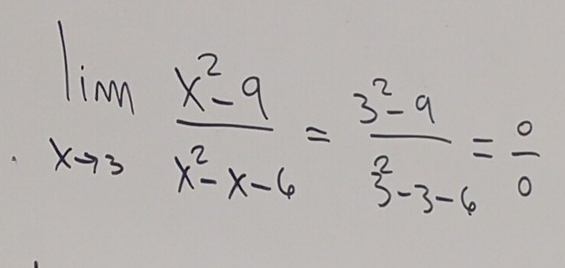 lim x→3 (x² - 9)/(x² - x - 6) = (3² - 9)/(3² - 3 - 6) = 0/0